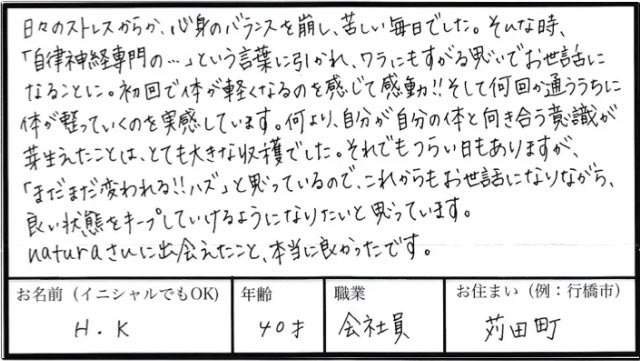 日々のストレスからか、心身のバランスを崩し、苦しい毎日でした。そんな時、
「自律神経専門の…」という言葉に引かれ、ワラにもすがる思いでお世話に
なることに。初回で体が軽くなるのを感じて感動!!そして何回か通ううちに
体が整っていくのを実感しています。何より、自分が自分の体と向き合う意識が
芽生えたことは、とても大きな収穫でした。それでもつらい日もありますが、
「まだまだ変われる!!ハズ」と思っているので、これからもお世話になりながら、
良い状態をキープしていけるようになりたいと思っています。
naturaさんに出会えたこと、本当に良かったです。
お名前（イニシャルでもOK) 年齢 職業 お住まい（例：行橋市）
H.K 40才 会社員 苅田町